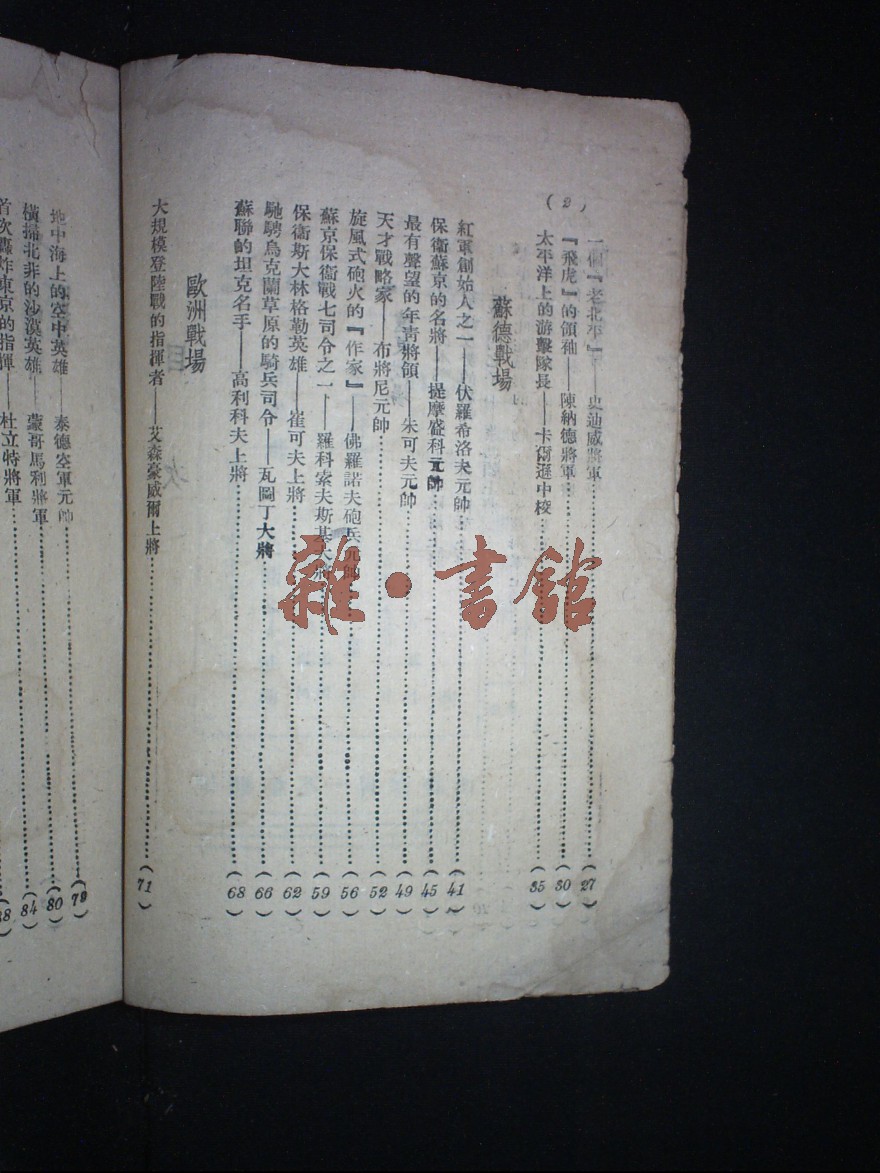 (2)
一個『老北平』——史迪威將軍……(27)
『飛虎』的領袖——陳納德將軍……(30)
太平洋上的游擊隊長——卡爾遜中校……(35)
蘇德戰場
紅軍創始人之一——伏羅希洛夫元帥……(41)
保衛蘇京的名將——提摩盛科元帥……(45)
最有聲望的年靑將領——朱可夫元帥……(49)
天才戰略家——布將尼元帥……(52)
旋風式砲火的『作家』——佛羅諾夫砲兵元帥……(56)
蘇京保衞戰七司令之一——羅科索夫斯基大將……(59)
保衞斯大林格勒英雄——崔可夫上將……(62)
馳騁烏克蘭草原的騎兵司令——瓦圖丁大將……(66)
蘇聯的坦克名手——高利科夫上將……(68)
歐洲戰場
大規模登陸戰的指揮者——艾森豪威爾上將……(71)
地中海上的空中英雄——泰德空軍元帥……(79)
橫掃北非的沙漠英雄——蒙哥馬利將軍……(80)
首次轟炸東京的指揮——杜立特將軍……(84)
雜·書館